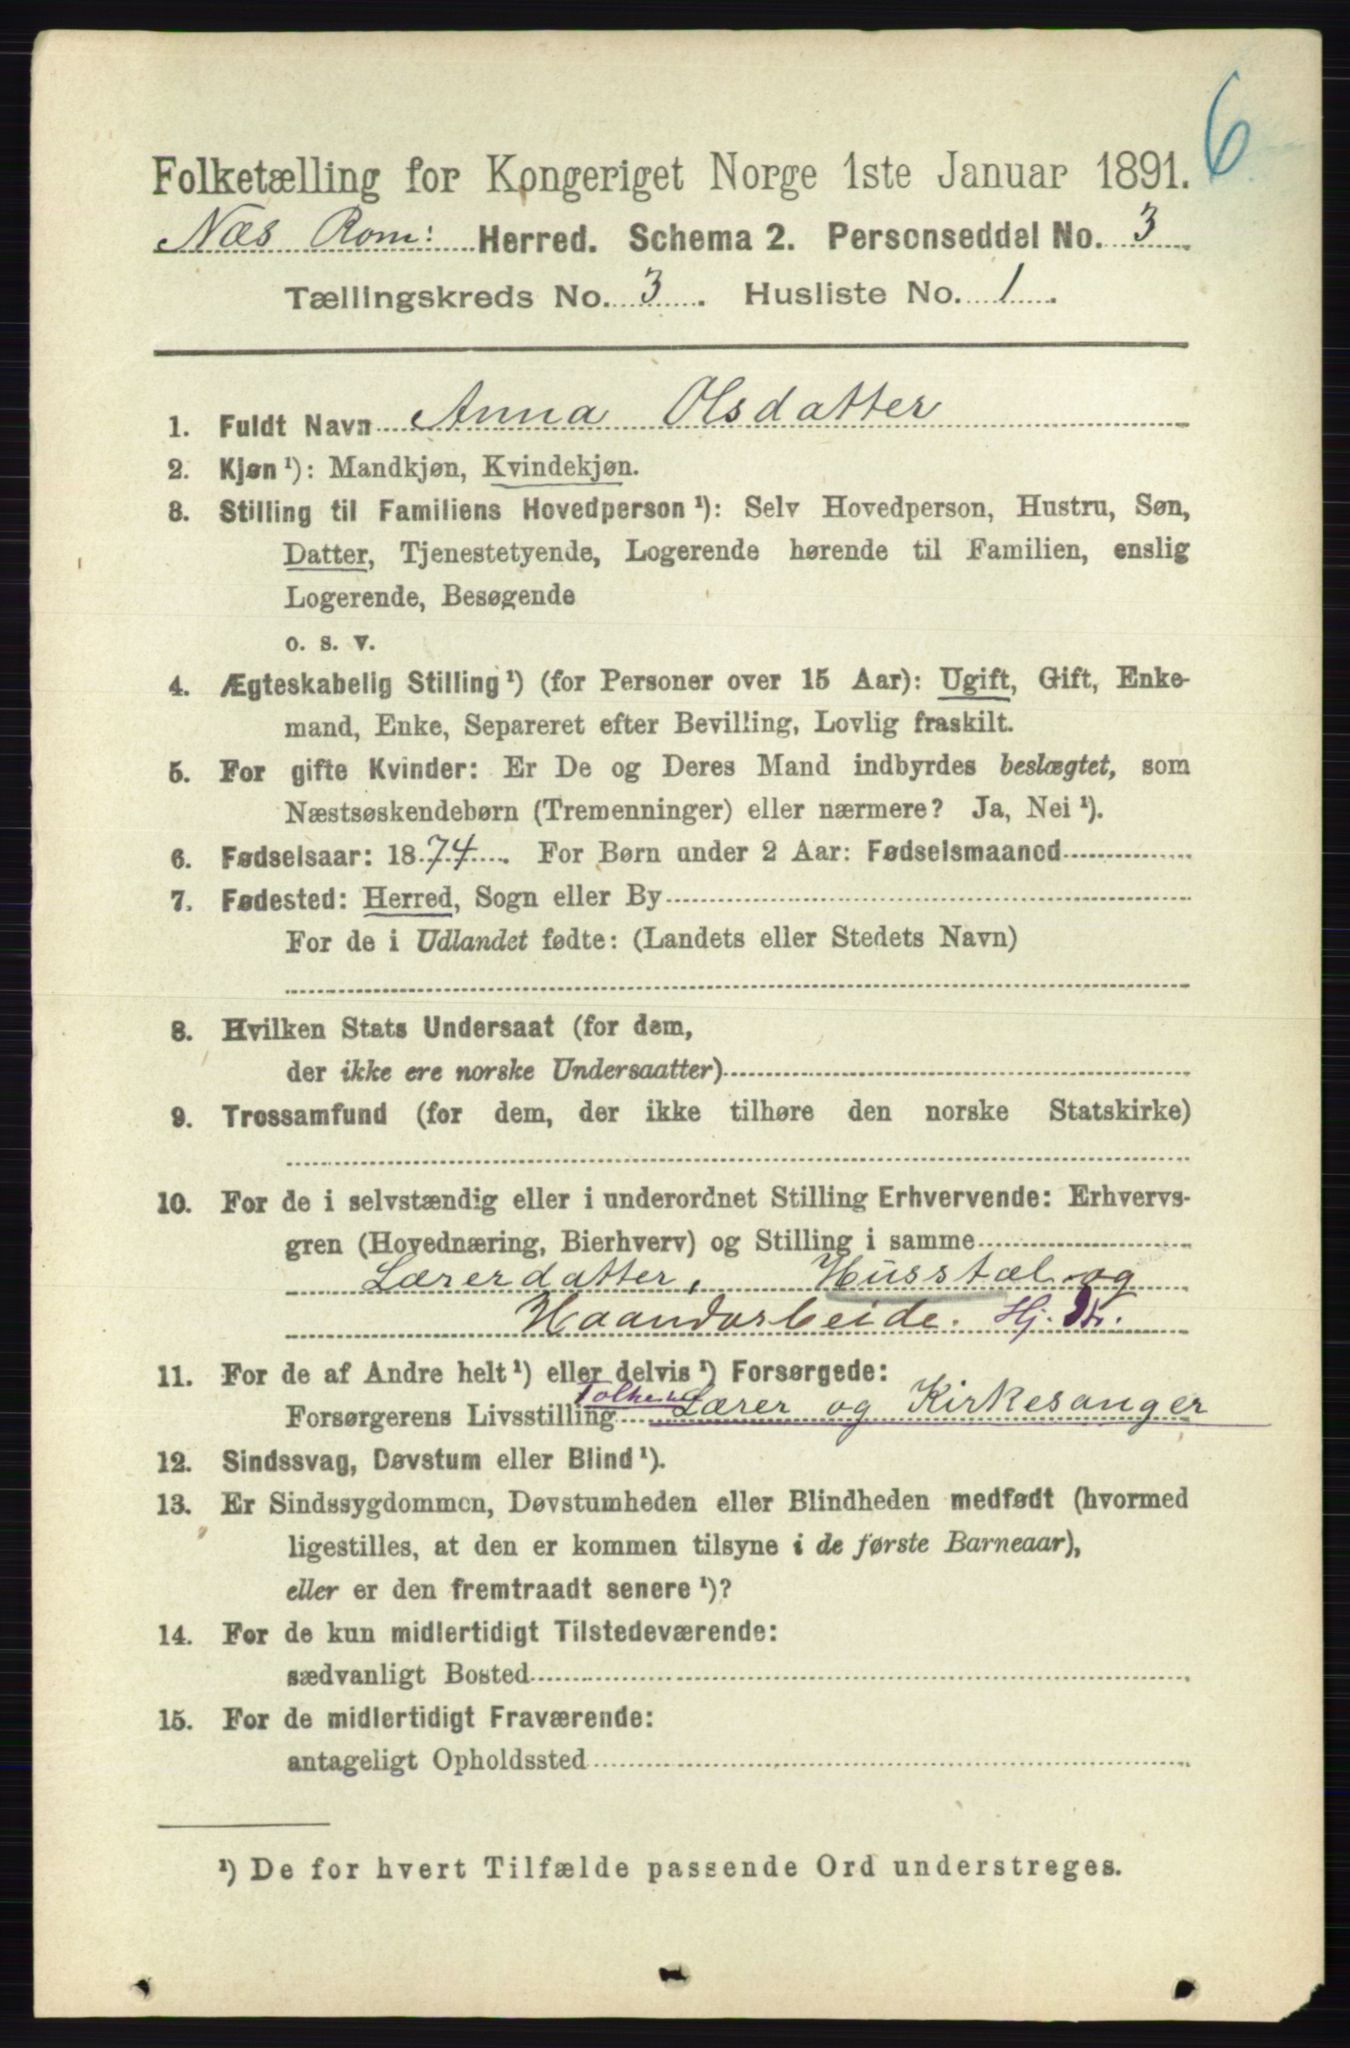 6
Folketælling for Kongeriget Norge 1ste Januar 1891.
Næs Rom: Herred. Schema 2. Personseddel No. 3
Tællingskreds No. 3. Husliste No. 1.
1. Fuldt Navn Anna Olsdatter
2. Kjøn ¹): Mandkjøn, Kvindekjøn.
3. Stilling til Familiens Hovedperson ¹): Selv Hovedperson, Hustru, Søn,
Datter, Tjenestetyende, Logerende hørende til Familien, enslig
Logerende, Besøgende
o. s. v.
4. Ægteskabelig Stilling ¹) (for Personer over 15 Aar): Ugift, Gift, Enke-
mand, Enke, Separeret efter Bevilling, Lovlig fraskilt.
5. For gifte Kvinder: Er De og Deres Mand indbyrdes beslægtet, som
Næstsøskendebørn (Tremenninger) eller nærmere? Ja, Nei ¹).
6. Fødselsaar: 1874. For Børn under 2 Aar: Fødselsmaaned
7. Fødested: Herred, Sogn eller By
For de i Udlandet fødte: (Landets eller Stedets Navn)
8. Hvilken Stats Undersaat (for dem,
der ikke ere norske Undersaatter)
9. Trossamfund (for dem, der ikke tilhøre den norske Statskirke)
10. For de i selvstændig eller i underordnet Stilling Erhvervende: Erhvervs-
gren (Hovednæring, Bierhverv) og Stilling i samme
Lærerdatter, Husstæl og
Haandarbeide. Hj. Dt.
11. For de af Andre helt ¹) eller delvis ¹) Forsørgede:
Forsørgerens Livsstilling Lærer og Kirkesanger
12. Sindssvag, Døvstum eller Blind ¹).
13. Er Sindssygdommen, Døvstumheden eller Blindheden medfødt (hvormed
ligestilles, at den er kommen tilsyne i de første Barneaar),
eller er den fremtraadt senere ¹)?
14. For de kun midlertidigt Tilstedeværende:
sædvanligt Bosted
15. For de midlertidigt Fraværende:
antageligt Opholdssted
¹) De for hvert Tilfælde passende Ord understreges.